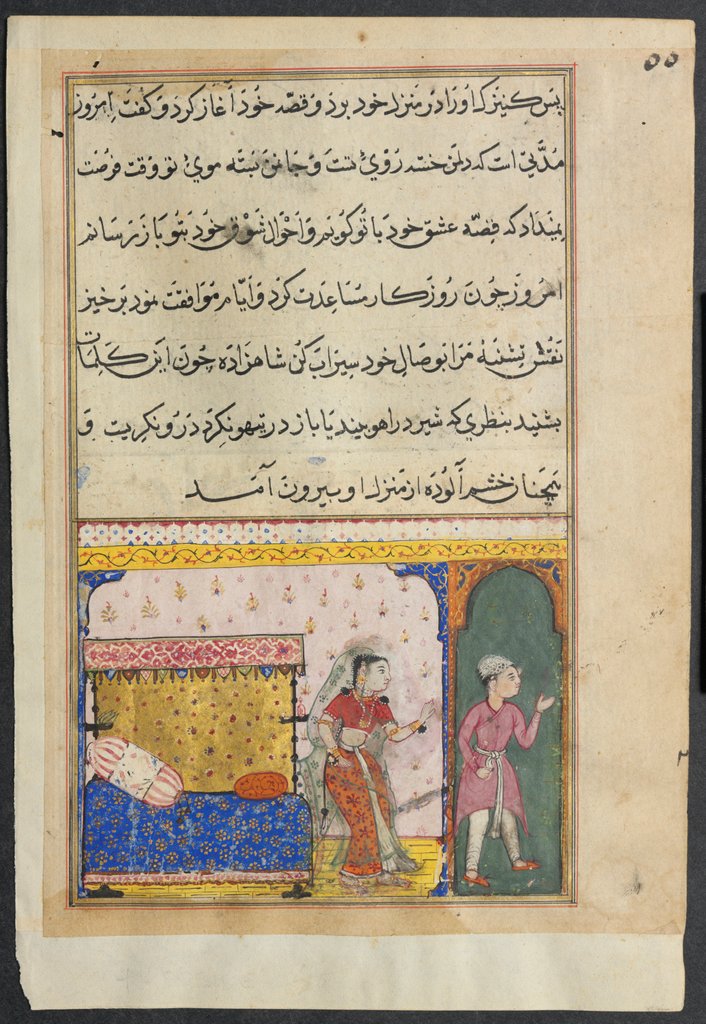 ۵۵
پس کنیزک او را در منزل خود برد و قصه خود آغاز کرد و گفت امروز
مدتی است که دل من خسته روی تست و جان من بسته موی تو وقت فرصت
نمیداد که قصه عشق خود با تو گویم و احوال شوق خود بتو باز رسانم
امروز چون روزگار مساعدت کرد و ایام موافقت نمود برخیز
تشنه مرا بوصال خود سیراب کن شاهزاده چون این کلمات
بشنید بنظری که شیر در اهو بیند یا باز در تیهو نگرد درو نگریست و
همچنان خشم آلوده از منزل او بیرون آمد